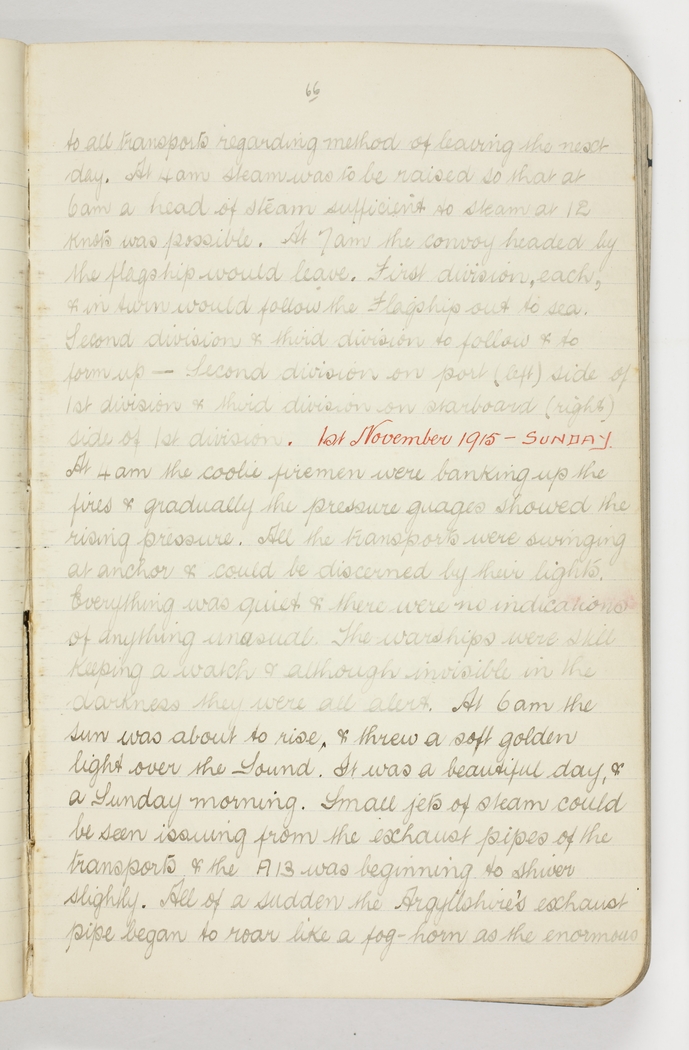 66
to all transports regarding method of leaving the next
day. At 4am steam was to be raised so that at
6am a head of steam sufficient to steam at 12
knots was possible. At 7am the convoy headed by
the flagship would leave. First division, each,
& in turn would follow the Flagship out to sea.
Second division & third division to follow & to
form up — Second division on port (left) side of
1st division & third division on starboard (right)
side of 1st division. 1st November 1915 – SUNDAY.
At 4am the coolie firemen were banking up the
fires & gradually the pressure guages showed the
rising pressure. All the transports were swinging
at anchor & could be discerned by their lights.
Everything was quiet & there were no indications
of anything unusual. The warships were still
keeping a watch & although invisible in the
darkness they were all alert. At 6am the
sun was about to rise, & threw a soft golden
light over the Sound. It was a beautiful day, &
a Sunday morning. Small jets of steam could
be seen issuing from the exhaust pipes of the
transports, & the A13 was beginning to shiver
slightly. All of a sudden the Argyllshire's exhaust
pipe began to roar like a fog-horn as the enormous